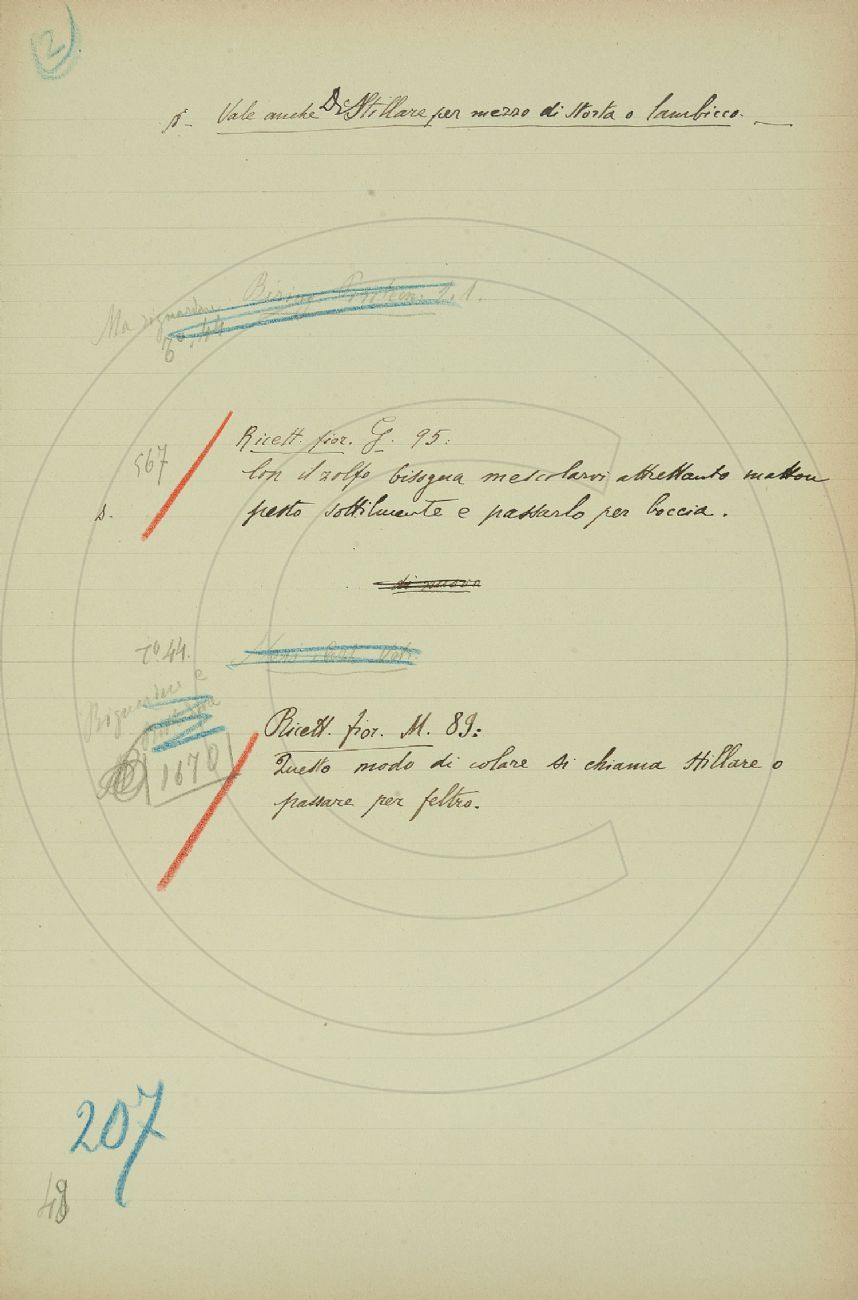 2
§- Vale anche DiStillare per mezzo di storta o lambicco. —
Ma
567
Ricett. fior. G. 95:
Con il zolfo bisogna mescolarvi altrettanto matton
s.
pesto sottilmente e passarlo per boccia.
di nuovo
To. 44.
1670
Ricett. fior. M. 89:
Questo modo di colare si chiama stillare o
passare per feltro.
207
48